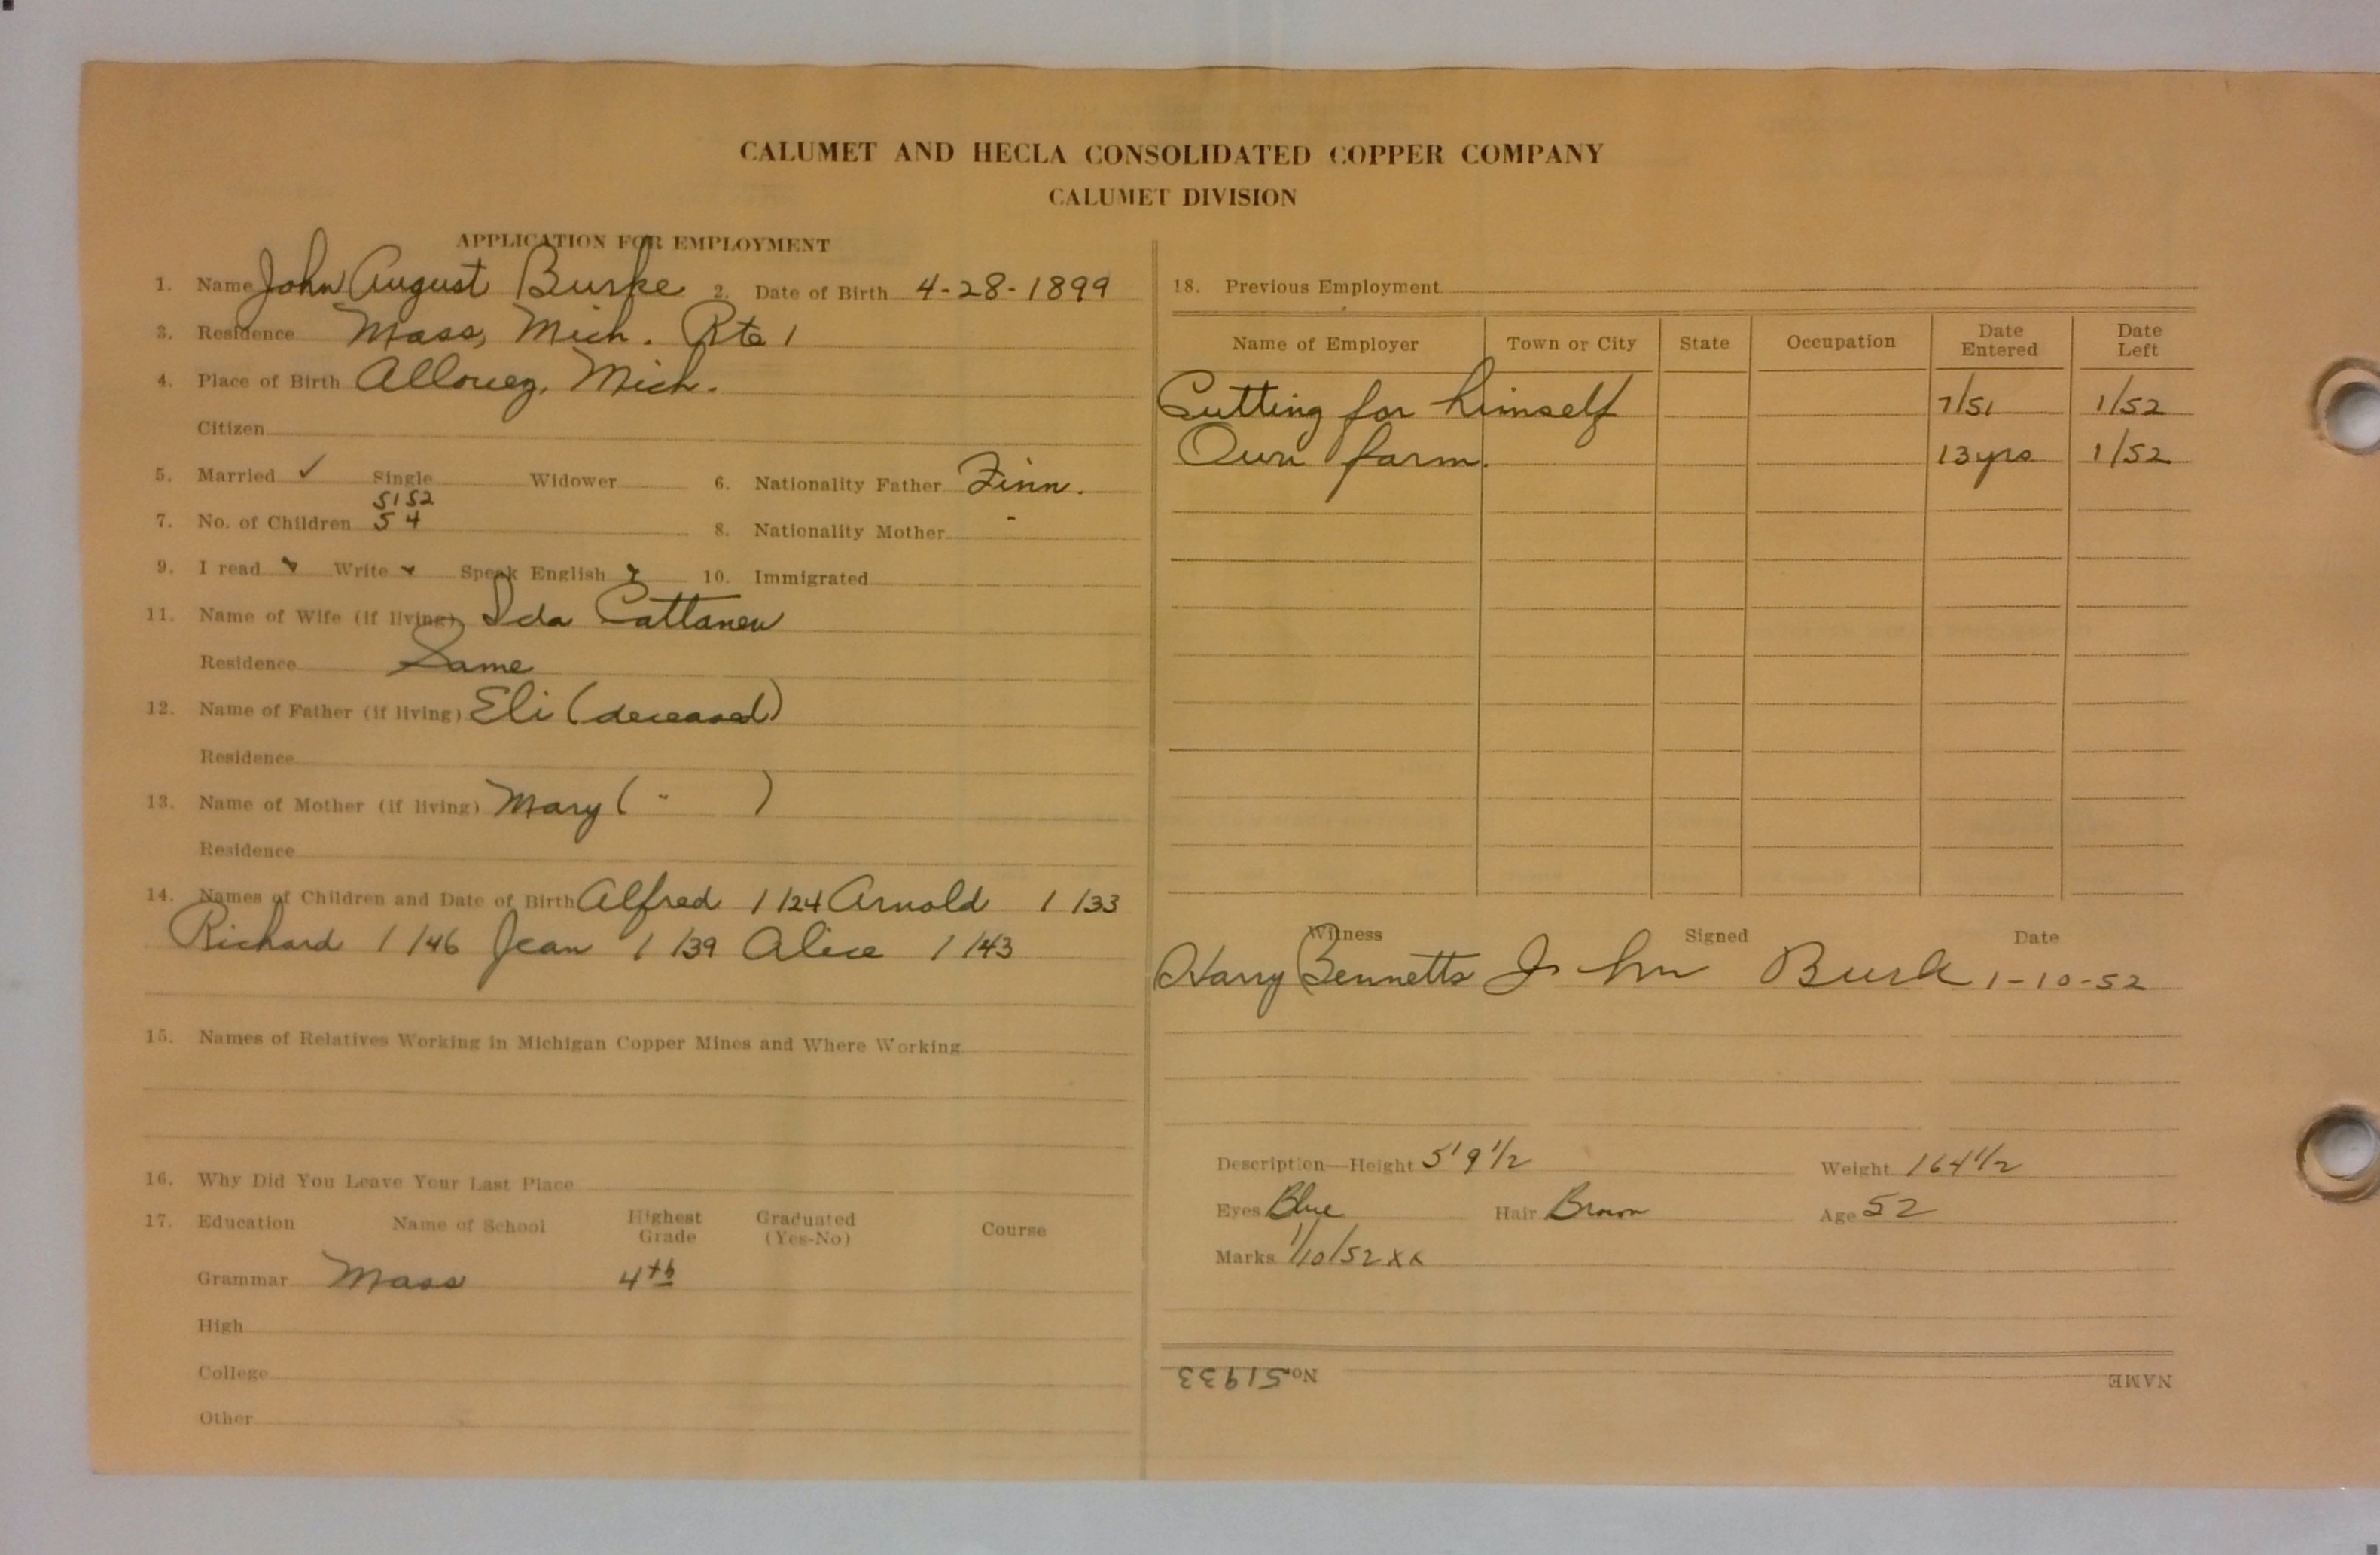 CALUMET AND HECLA CONSOLIDATED COPPER COMPANY
CALUMET DIVISION
APPLICATION FOR EMPLOYMENT
1. Name John August Burke 2. Date of Birth 4-28-1899
3. Residence Mass, Mich. Rte 1
4. Place of Birth Allouez, Mich.
Citizen
5. Married ✓ Single Widower 6. Nationality Father Finn.
51 52
7. No. of Children 5 4 8. Nationality Mother "
9. I read ✓ Write ✓ Speak English ✓ 10. Immigrated
11. Name of Wife (if living) Ida Cattanew
Residence Same
12. Name of Father (if living) Eli (deceased)
Residence
13. Name of Mother (if living) Mary ( " )
Residence
14. Names of Children and Date of Birth Alfred 1/24 Arnold 1/33
Richard 1/46 Jean 1/39 Alice 1/43
15. Names of Relatives Working in Michigan Copper Mines and Where Working
16. Why Did You Leave Your Last Place
17. Education Name of School Highest Grade Graduated (Yes-No) Course
Grammar Mass 4th
High
College
Other
18. Previous Employment
Name of Employer Town or City State Occupation Date Entered Date Left
Cutting for himself 7/51 1/52
Own farm. 13 yrs 1/52
Witness Signed Date
Harry Bennetts John Burk 1-10-52
Description—Height 5'9 1/2 Weight 164 1/2
Eyes Blue Hair Brown Age 52
Marks 1/10/52 xx
No. 51933 NAME